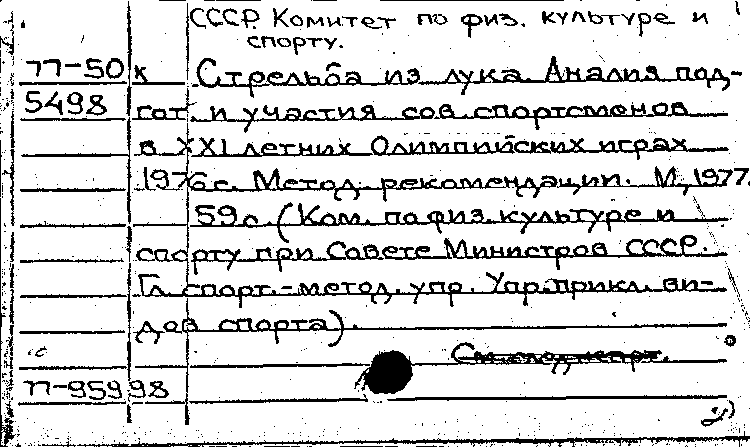 СССР. Комитет по физ. культуре и
спорту.
77-50 к Стрельба из лука. Анализ под-
5498 гот. и участия сов. спортсменов
в XXI летних Олимпийских играх
1976 г. Метод. рекомендации. М., 1977.
59 с. (Ком. по физ. культуре и
спорту при Совете Министров СССР.
Гл. спорт.-метод. упр. Упр. прикл. ви-
дов спорта).
77-95998